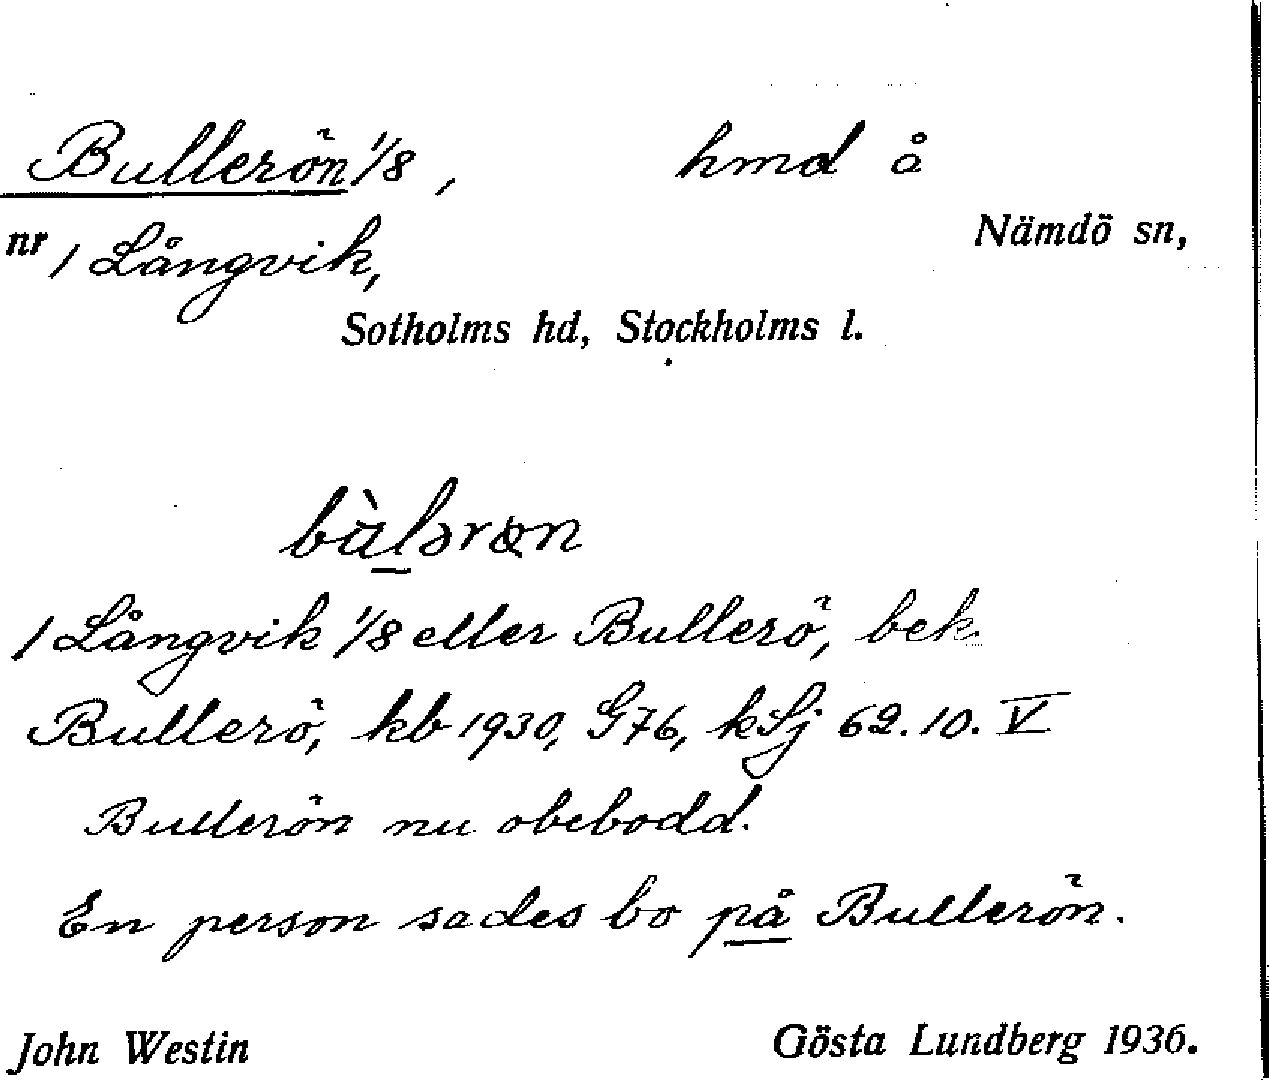 Bullerön 1/8, hmd å
nr 1 Långvik, Nämdö sn,
Sotholms hd, Stockholms l.
1 Långvik 1/8 eller Bullerö, bek.
Bullerö, kb 1930, G76, kSj 62.10.V
Bullerön nu obebodd.
En person sades bo på Bullerön.
John Westin Gösta Lundberg 1936.